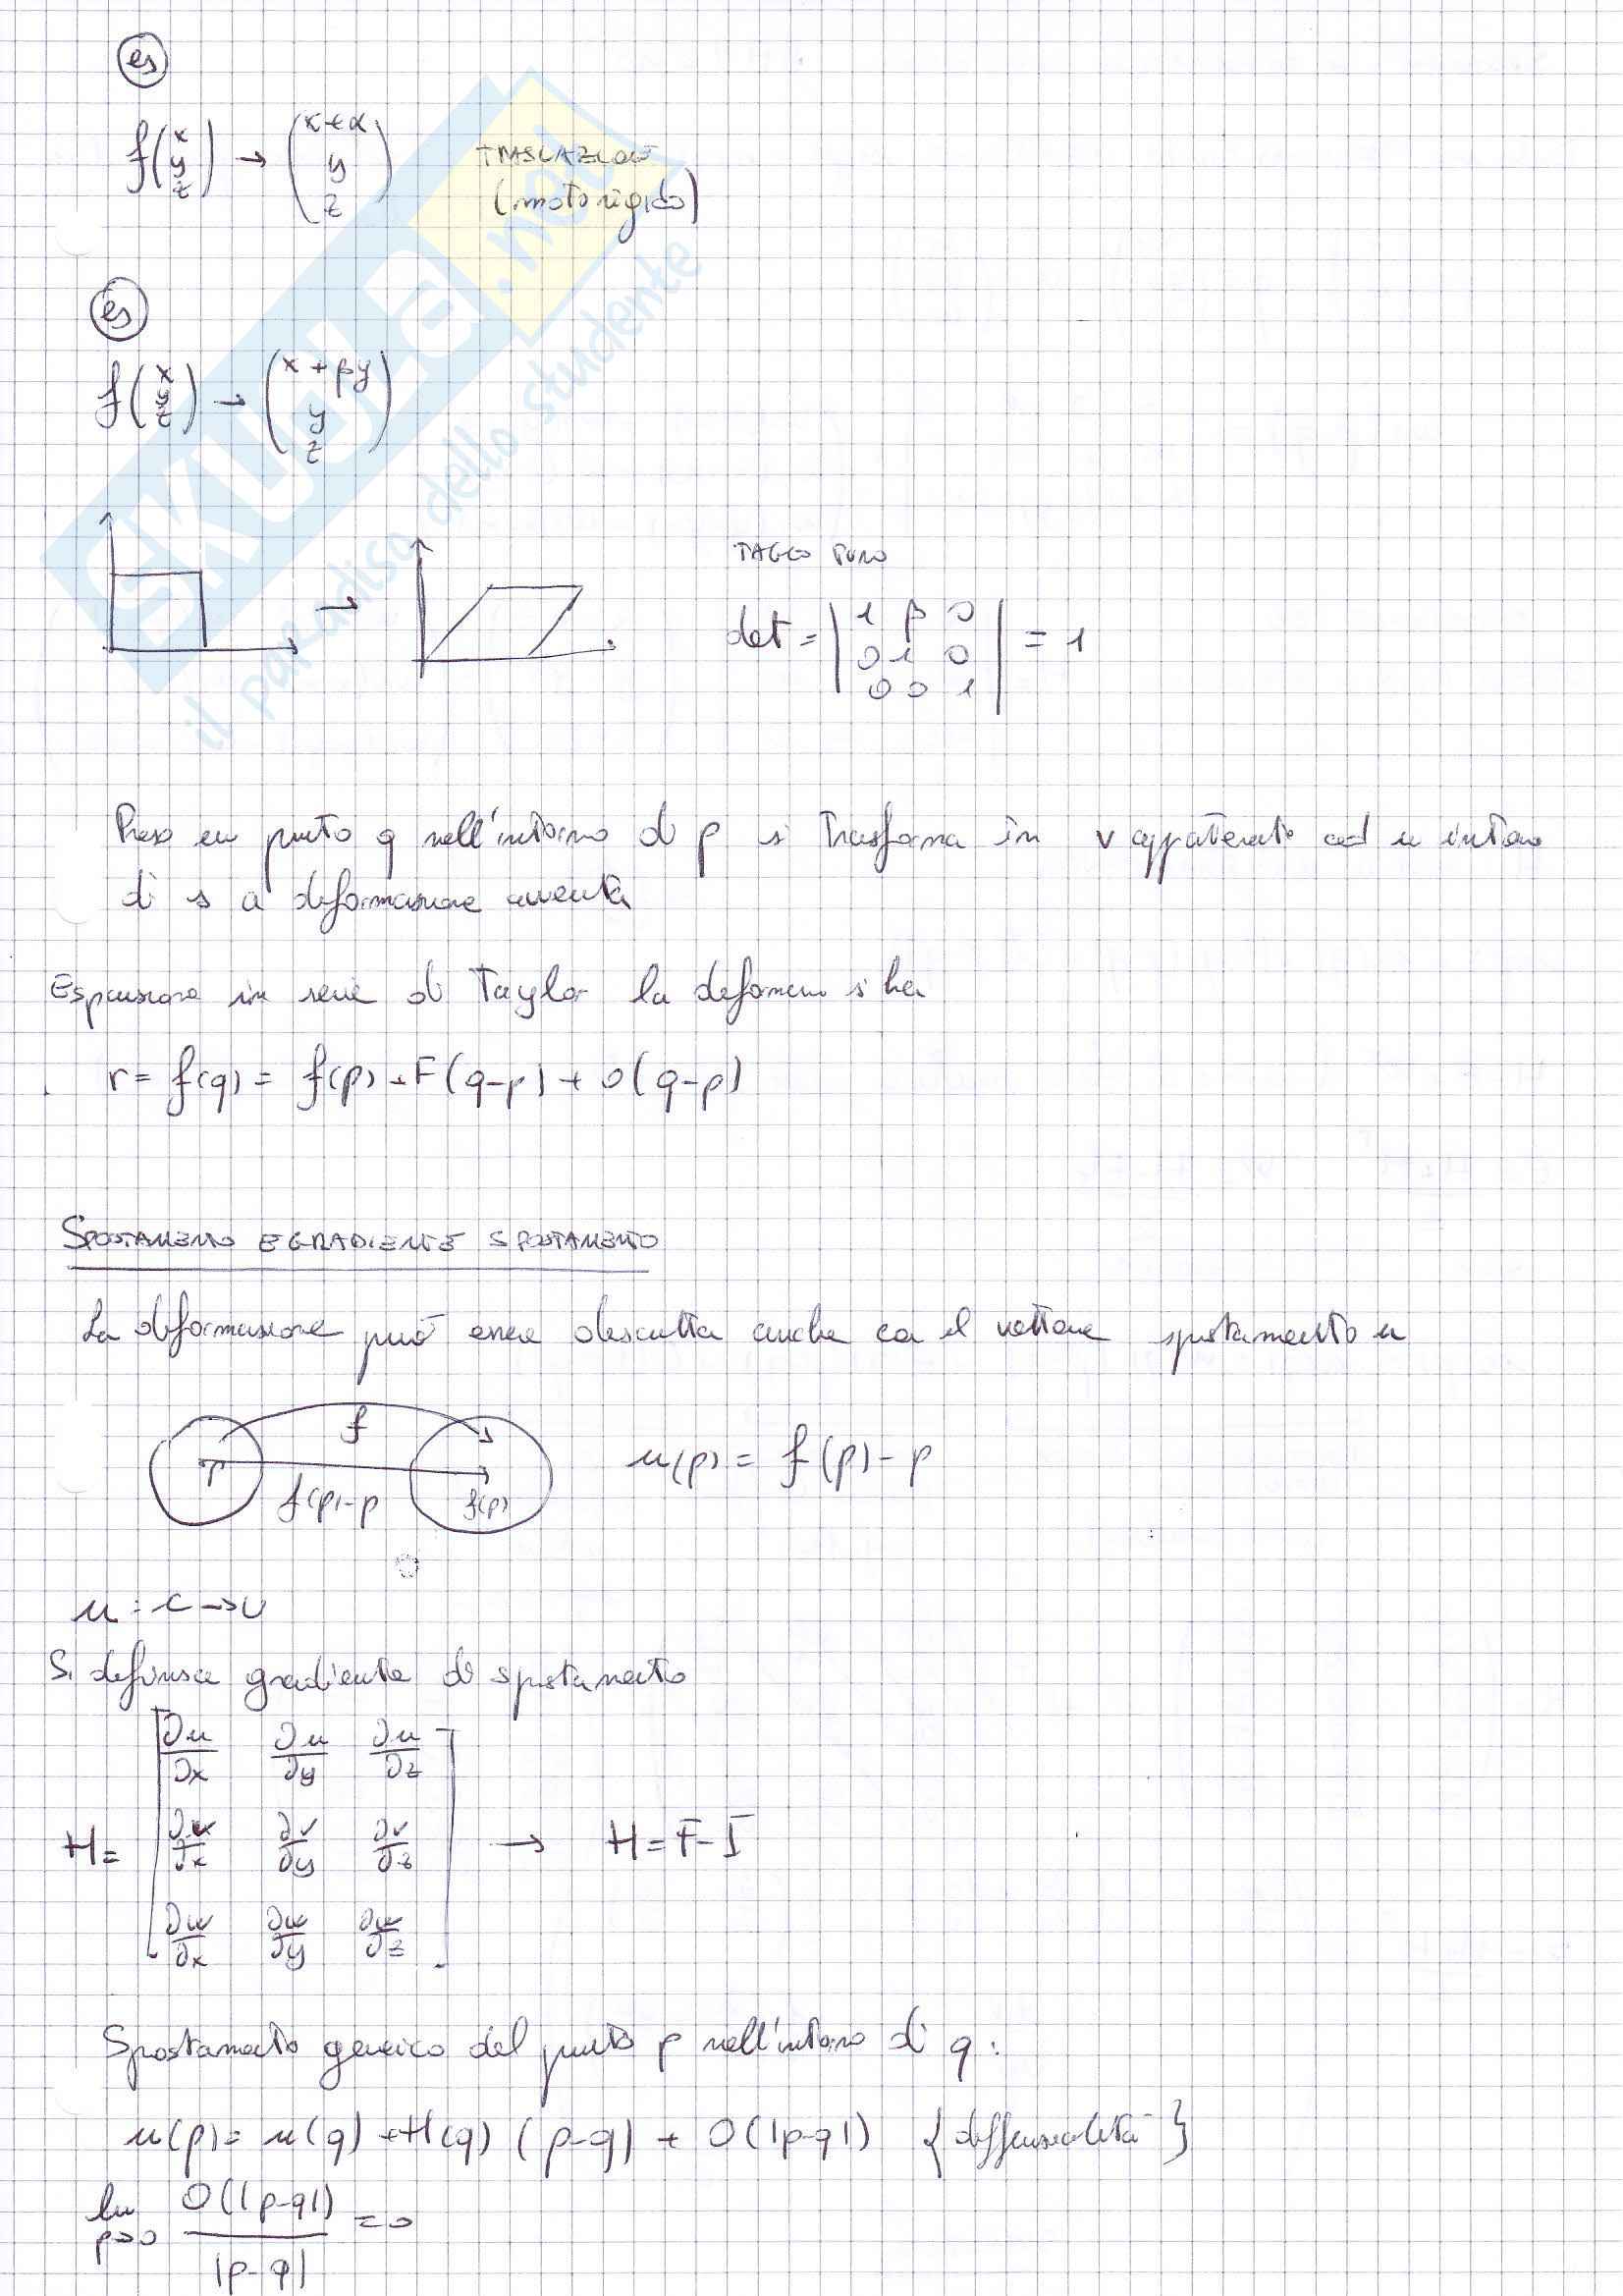 es
f(x y z) → (x+α y z) TRASLAZIONE
(moto rigido)
es
f(x y z) → (x+βy y z)
→
TAGLIO PURO
det = |1 β 0
0 1 0
0 0 1| = 1
Preso un punto q nell'intorno di p si trasforma in v appartenente ad un intorno
di s a deformazione avvenuta
Espansione in serie di Taylor la deformazione si ha
r = f(q) = f(p) + F(q-p) + o(q-p)
SPOSTAMENTO E GRADIENTE SPOSTAMENTO
La deformazione può essere descritta anche con il vettore spostamento u
f
p
f(p)-p
f(p)
u(p) = f(p) - p
u : C → U
Si definisce gradiente di spostamento
H = [∂u/∂x ∂u/∂y ∂u/∂z
∂v/∂x ∂v/∂y ∂v/∂z
∂w/∂x ∂w/∂y ∂w/∂z] → H = F - I
Spostamento generico del punto p nell'intorno di q :
u(p) = u(q) + H(q) (p-q) + O(|p-q|) {differenzialità}
lim p→0 O(|p-q|)/|p-q| = 0
SKUOLA.net
il paradiso dello studente